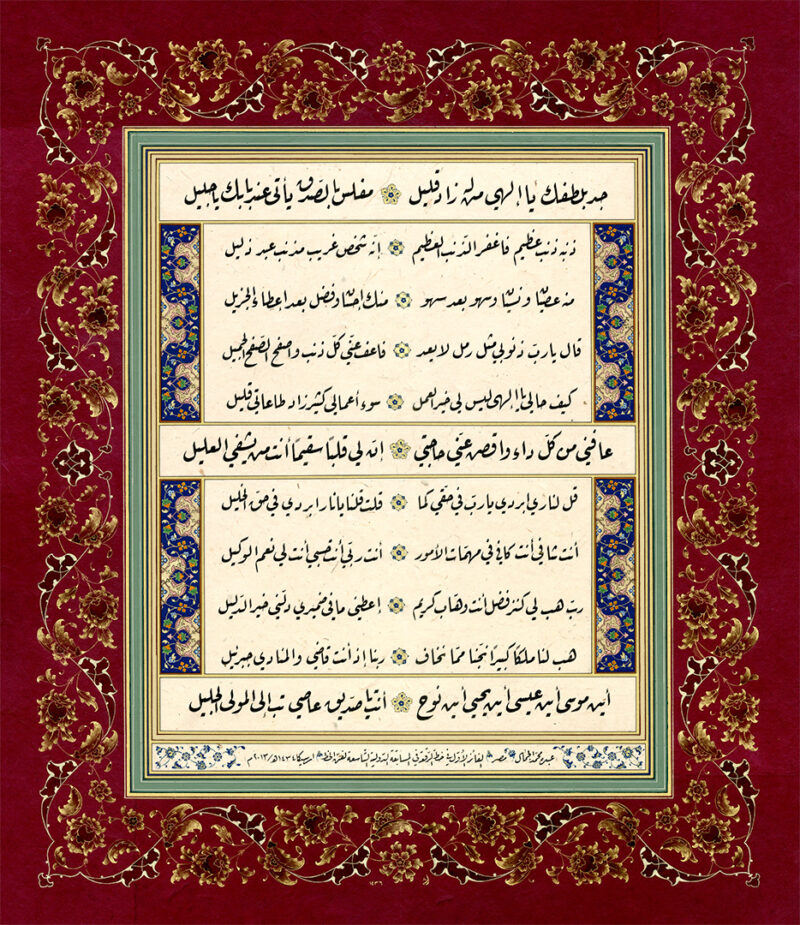 جد بلطفك يا إلهي من له زاد قليل مفلس بالصدق يأتي عند بابك يا جليل
ذنبه ذنب عظيم فاغفر الذنب العظيم إنه شخص غريب مذنب عبد ذليل
منه عصيان ونسيان وسهو بعد سهو منك احسان وفضل بعد اعطاء الجزيل
قال يا رب ذنوبي مثل رمل لا يعد فاعف عني كل ذنب واصفح الصفح الجميل
كيف حالي يا إلهي ليس لي خير العمل سوء أعمالي كثير زاد طاعاتي قليل
عافني من كل داء واقض عني حاجتي إن لي قلبًا سقيمًا أنت من يشفي العليل
قل لناري ابردي يا رب في حقي كما قلت قلنا يا نار ابردي في حق الخليل
أنت شافي أنت كافي في مهمات الأمور أنت ربي أنت حسبي أنت لي نعم الوكيل
رب هب لي كنز فضل أنت وهاب كريم إعطني ما في ضميري دلني خير الدليل
هب لنا ملكًا كبيرًا نجنا مما نخاف ربنا إذ أنت قاضي والمنادي جبرئيل
أين موسى أين عيسى أين يحيى أين نوح أنت يا صديق عاصي تب إلى المولى الجليل
عبده محمد الجمال مصر الفائز الأول في خط الرقعة في المسابقة الدولية التاسعة لفن الخط ارسيكا ١٤٣٤هـ/٢٠١٣م